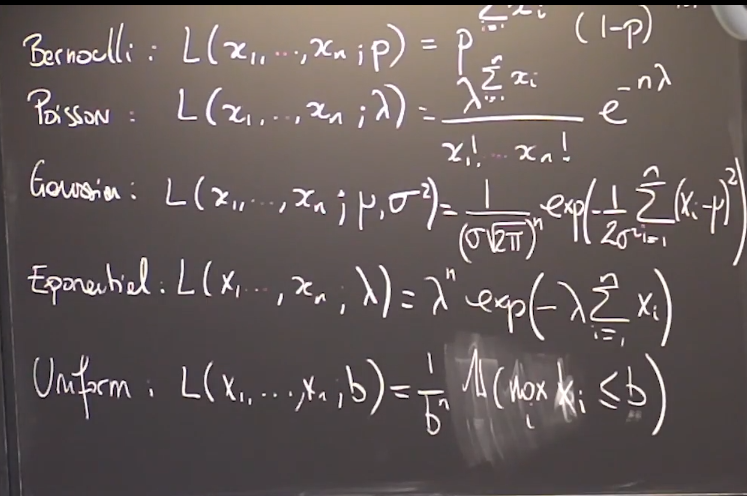 Bernoulli : L(x₁, ..., xₙ ; p) = p^{∑_{i=1}^{n} x_i} (1-p)
Poisson : L(x₁, ..., xₙ ; λ) = \frac{λ^{∑_{i=1}^{n} x_i}}{x₁! ... xₙ!} e^{-nλ}
Gaussian : L(x₁, ..., xₙ ; μ, σ²) = \frac{1}{(σ√2π)^n} exp(-\frac{1}{2σ²} ∑_{i=1}^{n} (x_i-μ)²)
Exponential : L(x₁ ..., xₙ ; λ) = λ^n exp(-λ ∑_{i=1}^{n} x_i)
Uniform : L(x₁, ..., xₙ ; b) = \frac{1}{b^n} 𝟙(max_i x_i ≤ b)